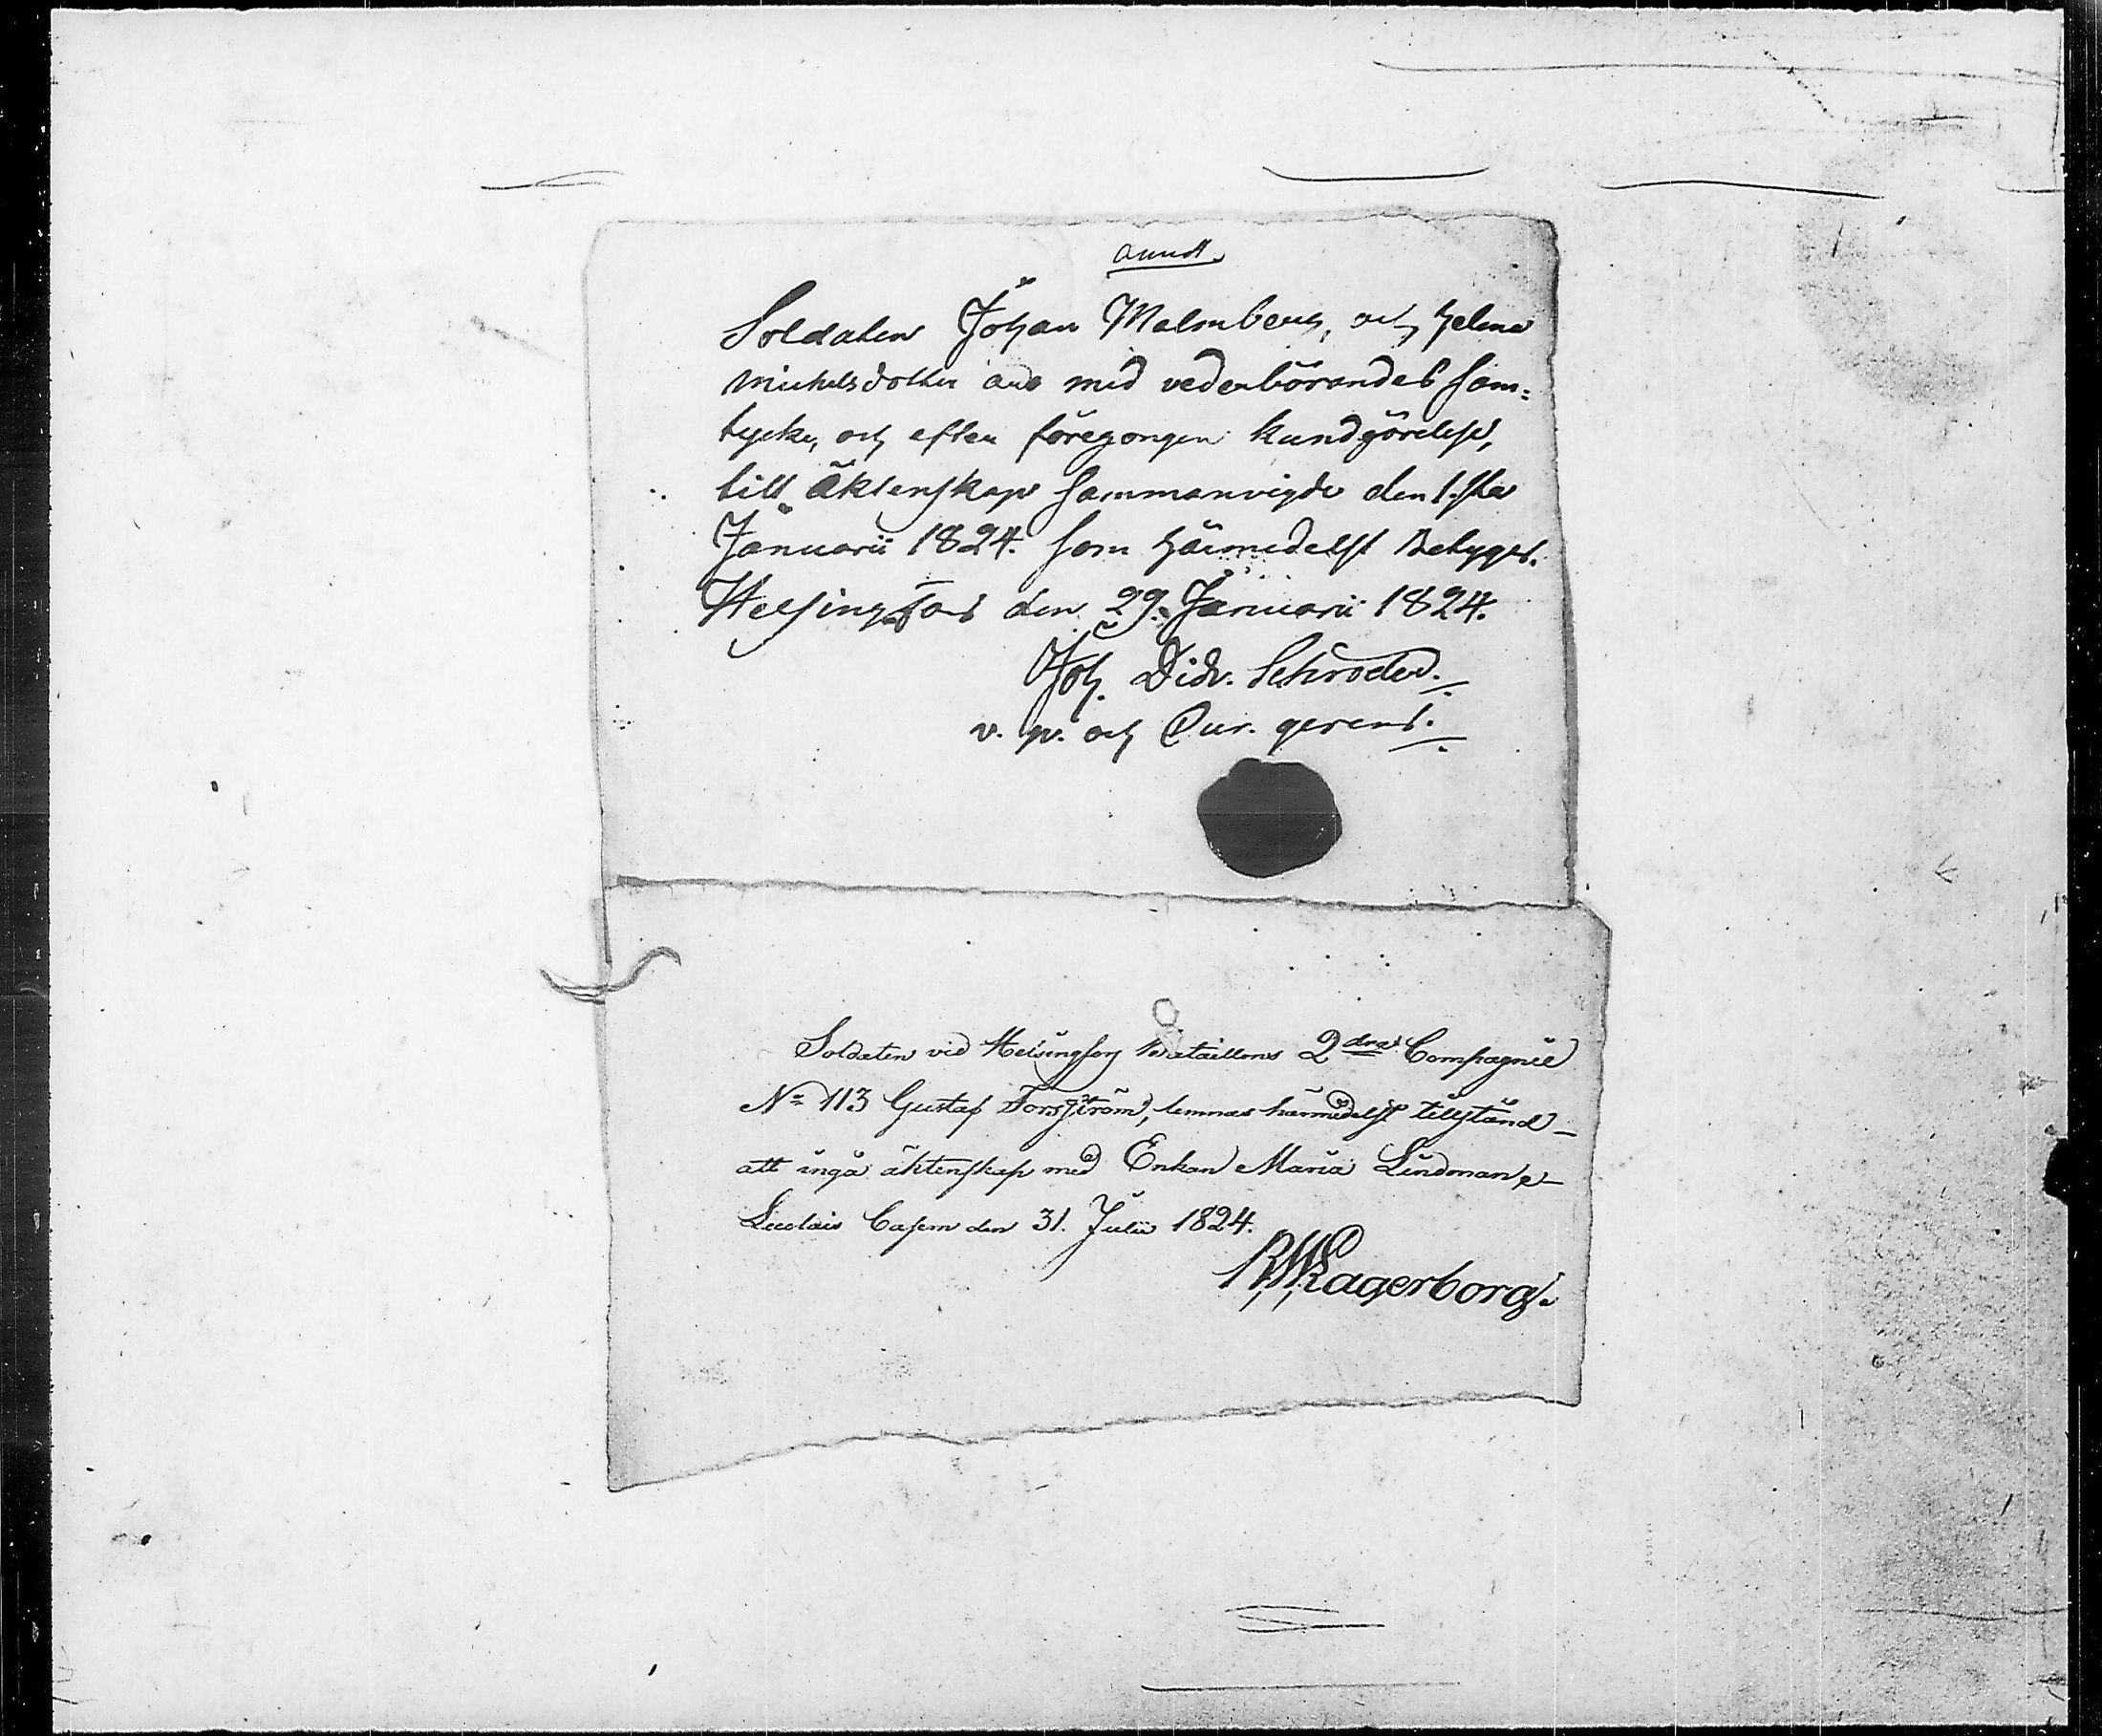 anmält.
Soldaten Johan Malmberg, och Helena
Michelsdotter äro med vederbörandes sam-
tycke, och efter föregongen kundgörelse,
till äktenskap sammanvigde den 1:sta
Januarii 1824. som härmedelst Betygas.
Helsingfors den 29. Januarii 1824.
Joh. Didr. Schroder.
v. p. och Cur. gerens.
Soldaten vid Helsingfors Bataillons 2dra Compagnie
No 113 Gustaf Forsström, lemnas härmedelst tillstånd
att ingå äktenskap med Enkan Maria Lindman,
Casern den 31. Julii 1824.
RWLagerborg.